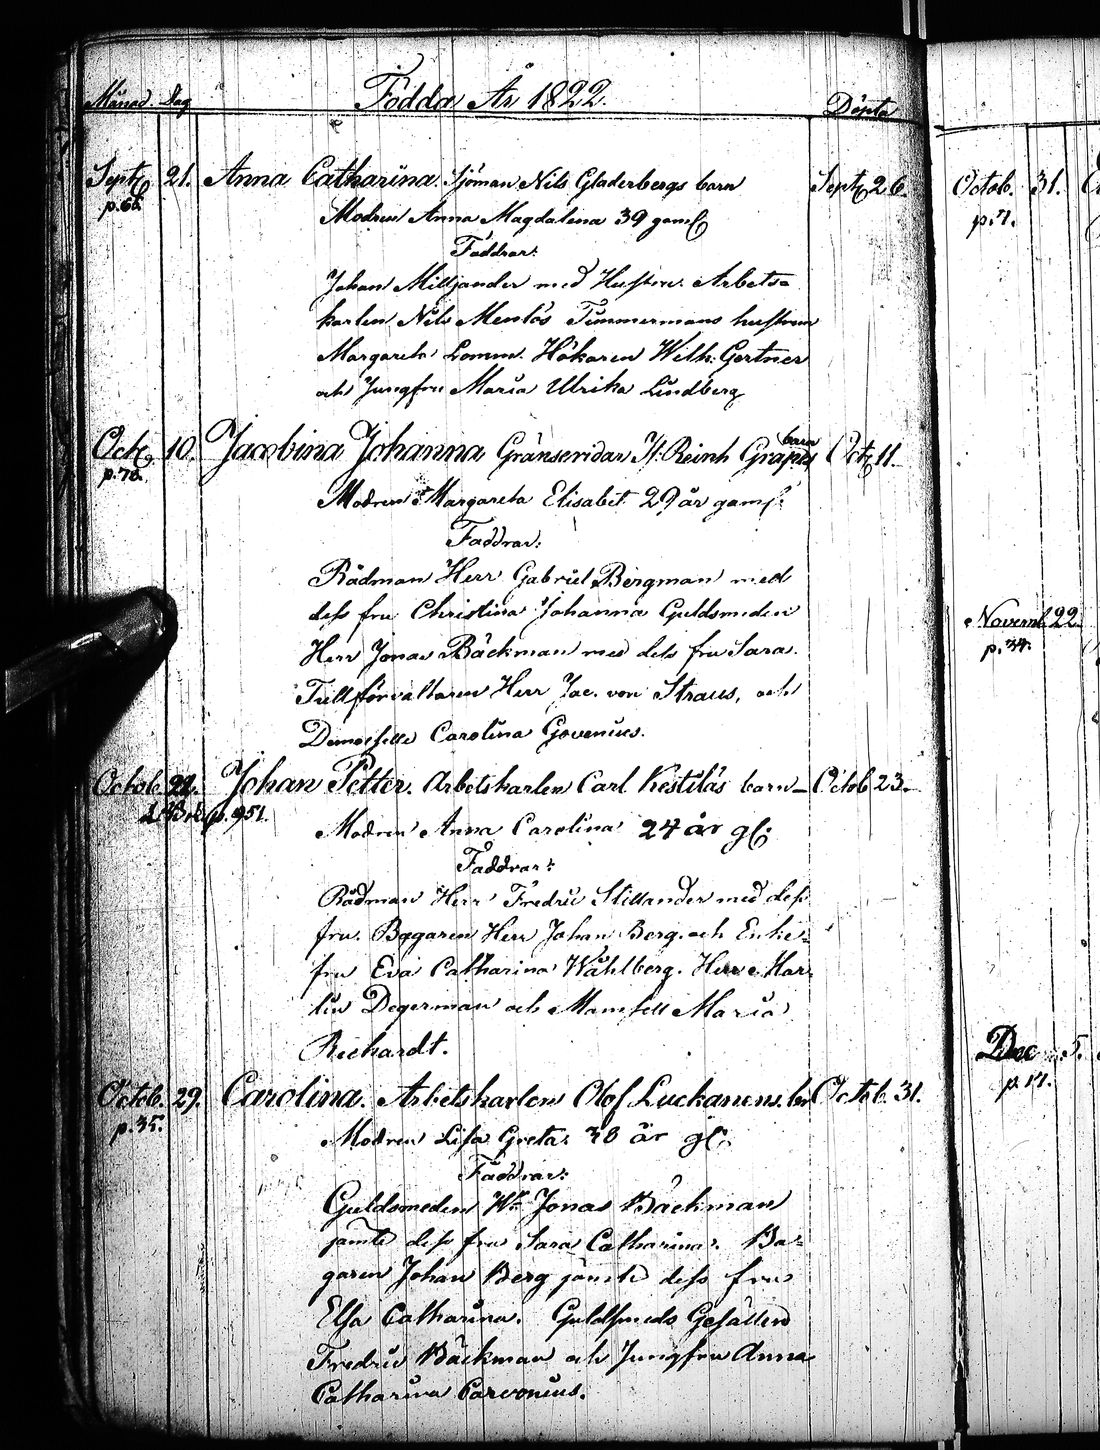 Månad. Dag Födda År 1822. Döpta
Septr 21. Anna Catharina. Sjöman Nils Gladerbergs barn Septr 26.
p.66. Modren Anna Magdalena 39 gaml
Faddrar:
Johan Milljander med Hustru. Arbets=
karlen Nils Menlös Timmermans hustrun
Margareta Lomm. Hökaren Wilh. Gertner
och Jungfru Maria Ulrika Lindberg
Octr 10. Jacobina Johanna Gränseridar H. Reinh Grapes barn Octr 11.
p.78. Modren Margareta Elisabet 29 år gaml:
Faddrar:
Rådman Herr Gabriel Bergman med
dess fru Christina Johanna Guldsmeden
Herr Jonas Bäckman med dess fru Sara.
Tullförvaltaren Herr Jac. von Straus, och
Demoiselle Carolina Govenius.
Octob 22. Johan Petter. Arbetskarlen Carl Kestiläs barn Octob 23.
p. 951. Modren Anna Carolina 24 år gl:
Faddrar:
Rådman Herr Fredric Stillander med dess
fru. Bagaren Herr Johan Berg. och Enke=
fru Eva Catharina Wåhlberg. Herr Mar=
tin Degerman och Mamsell Maria
Richardt.
Octob. 29. Carolina. Arbetskarlen Olof Luckanens. bn Octob. 31.
p.35. Modren Lisa Greta. 38 år gl:
Faddrar:
Guldsmeden Hr Jonas Bäckman
jämte dess fru Sara Catharina. Ba=
garen Johan Berg jämte dess fru
Elsa Catharina. Guldsmeds Gesällen
Fredric Bäckman och Jungfru Anna
Catharina Carvonius.
Octob. 31.
p.7.
Novemb 22.
p.34.
Dec 5.
p.17.